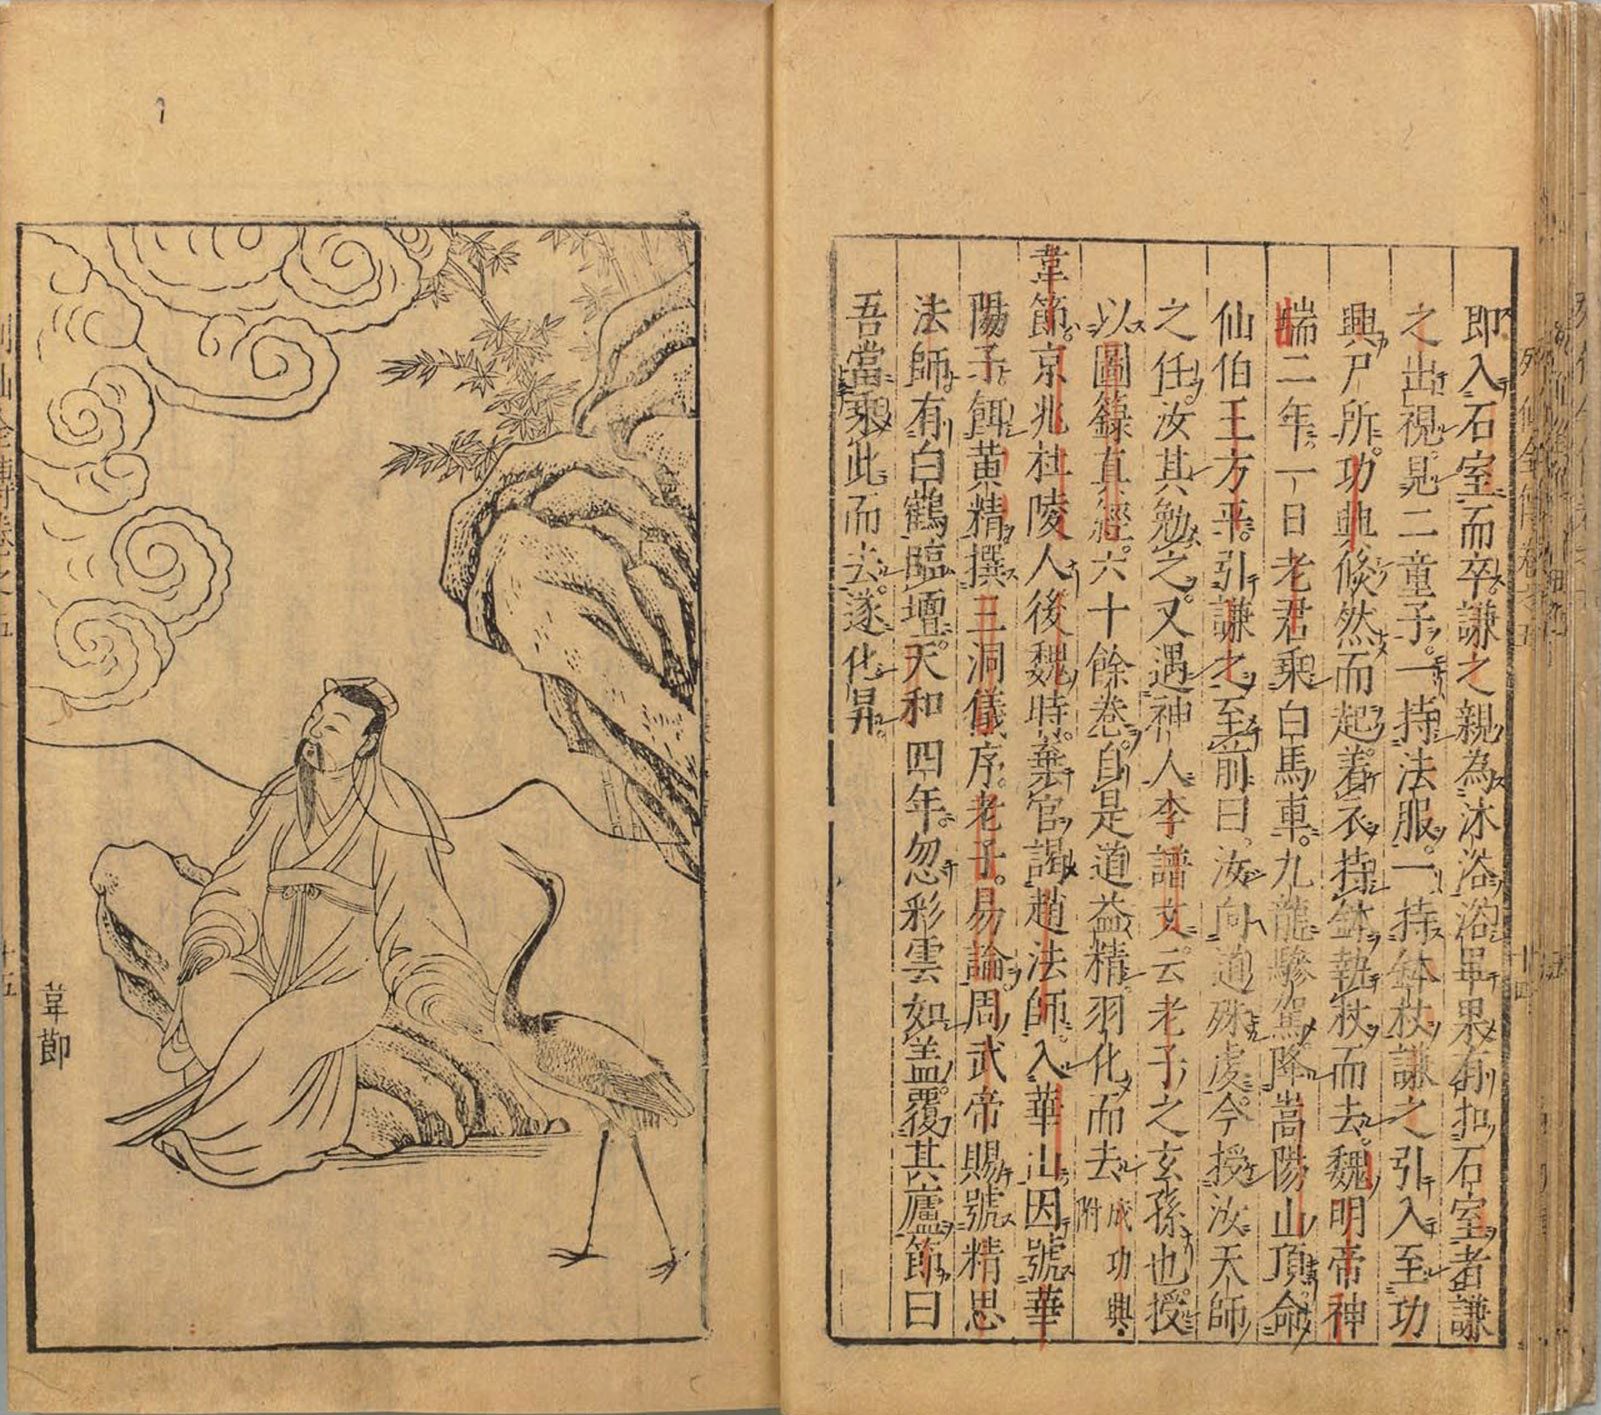 即入石室而卒謙之親為沐浴浴畢果有扣石室者謙
之出視見二童子一持法服一持鉢杖謙之引入至功
興尸所功興倐然而起着衣持鉢執杖而去魏明帝神
瑞二年一日老君乘白馬車九龍驂駕降嵩陽山頂命
仙伯王方平引謙之至前曰汝向道殊虔今授汝天師
之任汝其勉之又遇神人李譜文云老子之玄孫也授
以圖籙真經六十餘卷自是道益精羽化而去 成功興附
韋節京兆杜陵人後魏時棄官謁趙法師入華山因號華
陽子餌黄精撰三洞儀序老子易論周武帝賜號精思
法師有白鶴臨壇天和四年忽彩雲如盖覆其廬節曰
吾當乘此而去遂化昇
韋節